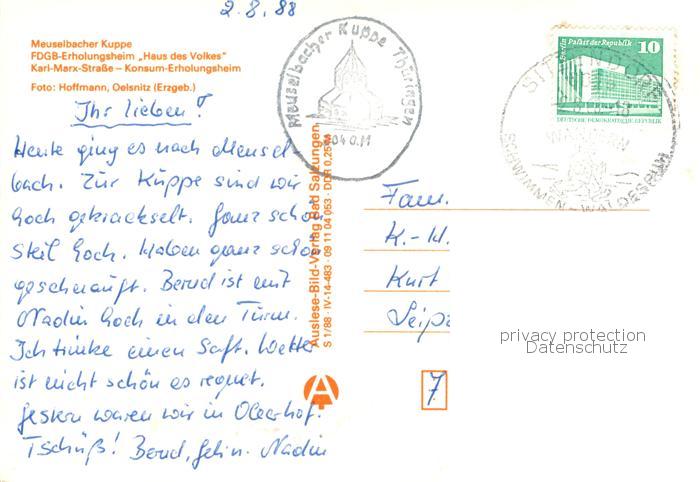 2.8.88
Meuselbacher Kuppe
FDGB-Erholungsheim „Haus des Volkes"
Karl-Marx-Straße – Konsum-Erholungsheim
Foto: Hoffmann, Oelsnitz (Erzgeb.)
Ihr lieben!
Heute ging es nach Meusel-
bach. Zur Kuppe sind wir
hoch gekrackselt. Ganz schön
steil hoch. Haben ganz schön
geschnauft. Bernd ist mit
Nadin hoch in den Turm.
Ich trinke einen Saft. Wetter
ist nicht schön es regnet.
Gestern waren wir in Oberhof.
Tschüß! Bernd, Nadin
Meuselbacher Kuppe Thüringen
Auslese-Bild-Verlag Bad Salzungen
S 1/88 · IV-14-483 · 09 11 04 053 · DDR 0,25 M
A
Berlin, Palast der Republik
10
DEUTSCHE DEMOKRATISCHE REPUBLIK
SCHWIMMEN - WALDESRUH
Fam.
K.-H.
Kurt
Leipz
7
privacy protection
Datenschutz